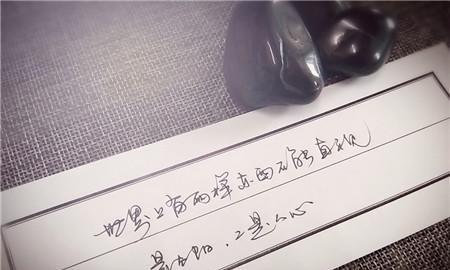 世界上有两样东西不能直视
是太阳，二是人心